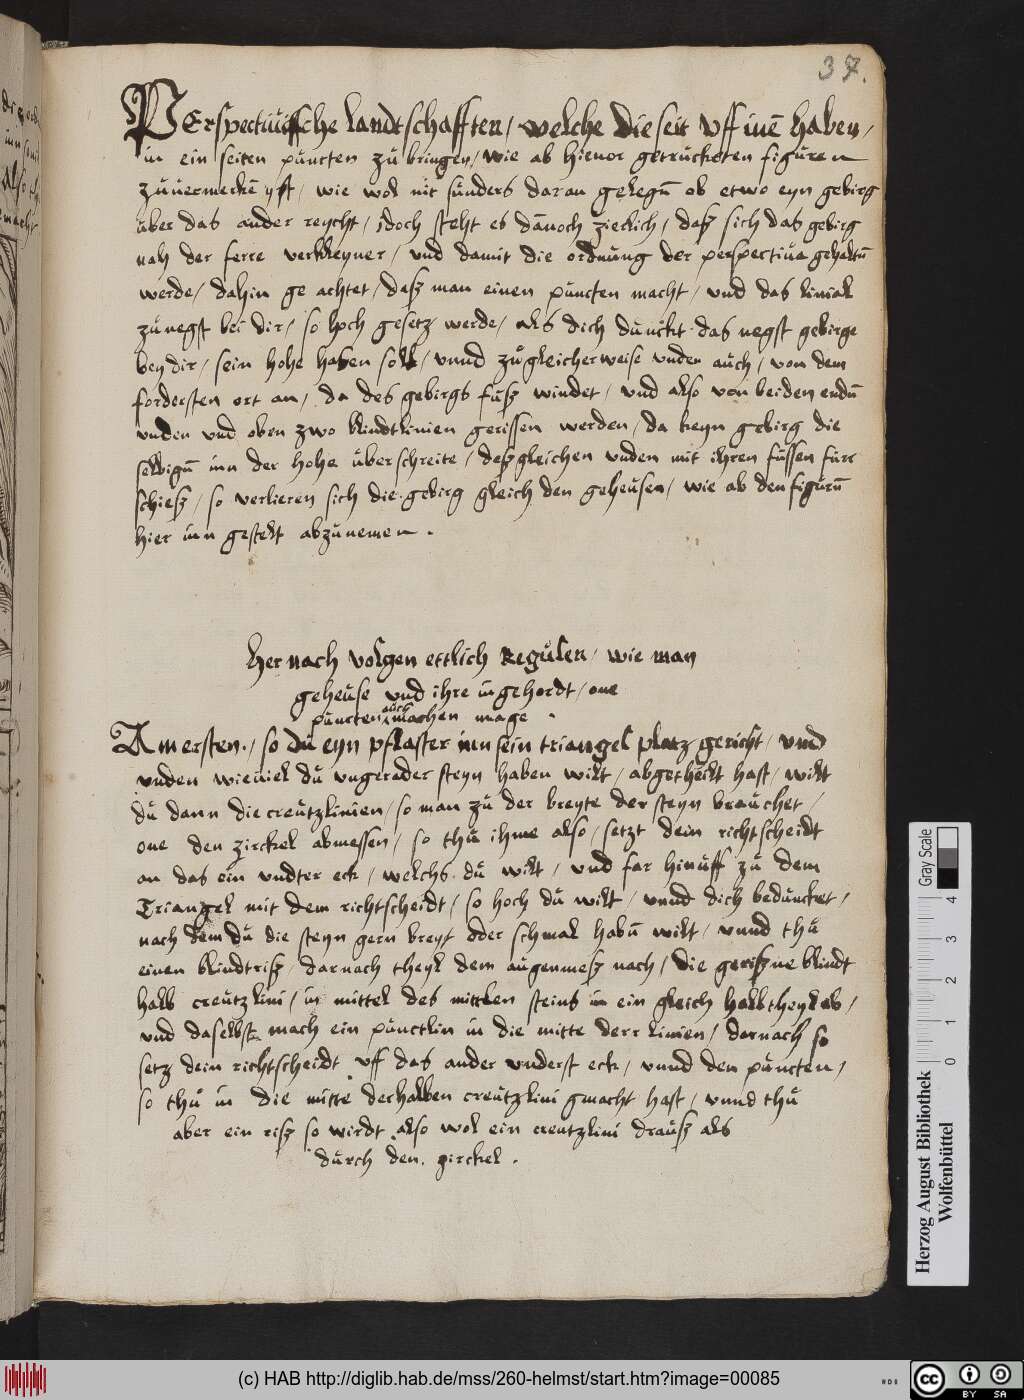 37.
PErspectiuische landtschafften, welche die seit vff inē haben,
in ein seiten puncten zů bringen, wie ab hieuor getruckten figuren
zůuermerkē yst, wie wol nit sunders daran gelegē ob etwo eyn gebirg
uber das ander reycht, idoch steht es dānoch zierlich, dasz sich das gebirg
nah der ferre verkleyner, vnd damit die ordnung der perspectiua gehaltē
werde, dahin ge achtet, dasz man einen puncten macht, vnd das linial
zů negst bei dir, so hoch gesetz werde, als dich dunckt das negst gebirge
bey dir, sein hohe haben soll, vnnd zůgleicherweise vnden auch, von dem
fordersten ort an, da des gebirgs fusz windet, vnd also von beiden endē
vnden vnd oben zwo blindtlinien gerissen werden, da keyn gebirg die
selbigē inn der hohe uberschreite, deszgleichen vnden mit ihren fussen furr
schiesz, so verlieren sich die gebirg gleich den geheusen, wie ab den figurē
hier inn gestelt abzunemen.
Her nach volgen ettlich Regulen, wie man
geheuse vnd ihre ingehordt, one
puncten auch machen mage.
Am ersten, so du eyn pflaster inn sein triangel platz gericht, vnd
vnden wieuiel du vngerader steyn haben wilt, abgetheilt hast, wilt
du dann die creutzlinien, so man zu der breyte der steyn brauchet,
one den zirckel abmessen, so thu ihme also, setzt dein richtscheidt
an das ein vndter eck, welchs du wilt, vnd far hinuff zu dem
Triangel mit dem richtscheidt, so hoch du wilt, vnnd dich beduncket,
nach dem du die steyn gern breyt oder schmal habē wilt, vnnd thů
einen blindtrisz, darnach theyl dem augenmesz nach, die geriszne blindt
halb creutzlini, in mittel des mittlen steins in ein gleich halb theyl ab,
vnd daselbst mach ein punctlin in die mitte derr linien, darnach so
setz dein richtscheidt vff das ander vnderst eck, vnnd den puncten,
so thů in die mitte der halben creutzlini gmacht hast, vnnd thů
aber ein risz so wirdt also wol ein creutzlini drausz als
durch den zirckel.
Gray Scale
0 1 2 3 4
Herzog August Bibliothek
Wolfenbüttel
(c) HAB http://diglib.hab.de/mss/260-helmst/start.htm?image=00085
cc BY SA